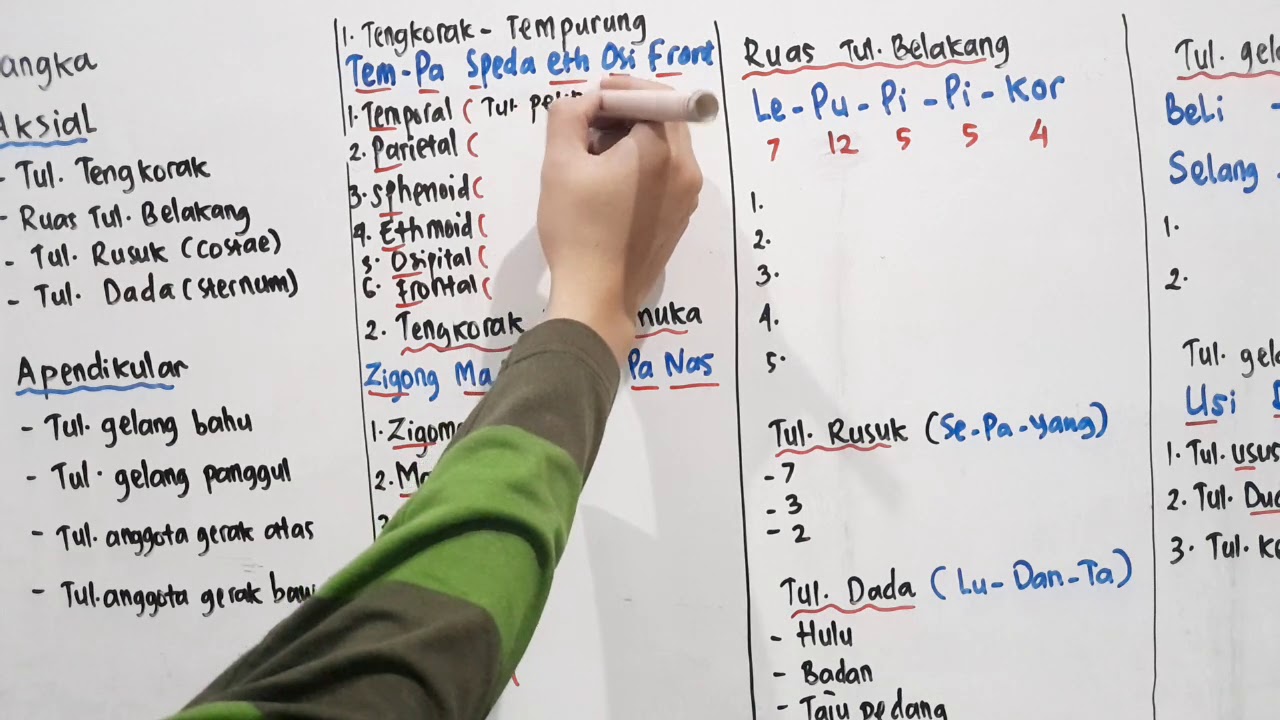 angka
Aksial
- Tul. Tengkorak
- Ruas Tul. Belakang
- Tul. Rusuk (costae)
- Tul. Dada (sternum)
Apendikular
- Tul. gelang bahu
- Tul. gelang panggul
- Tul. anggota gerak atas
- Tul. anggota gerak baw
1. Tengkorak - Tempurung
Tem-Pa Speda eth Osi Front
1. Temporal ( Tul. pel
2. Parietal (
3. sphenoid (
4. Ethmoid (
5. Osipital (
6. Frontal (
2. Tengkorak nuka
Zigong Ma Pa Nas
1. Zigom
2. Ma
Ruas Tul. Belakang
Le - Pu - Pi - Pi - Kor
7 12 5 5 4
1.
2.
3.
4.
5.
Tul. Rusuk (Se-Pa-Yang)
- 7
- 3
- 2
Tul. Dada (Lu-Dan-Ta)
- Hulu
- Badan
- Taju pedang
Tul. gela
Beli -
Selang
1.
2.
Tul. gela
Usi
1. Tul. usus
2. Tul. Dud
3. Tul. Ke